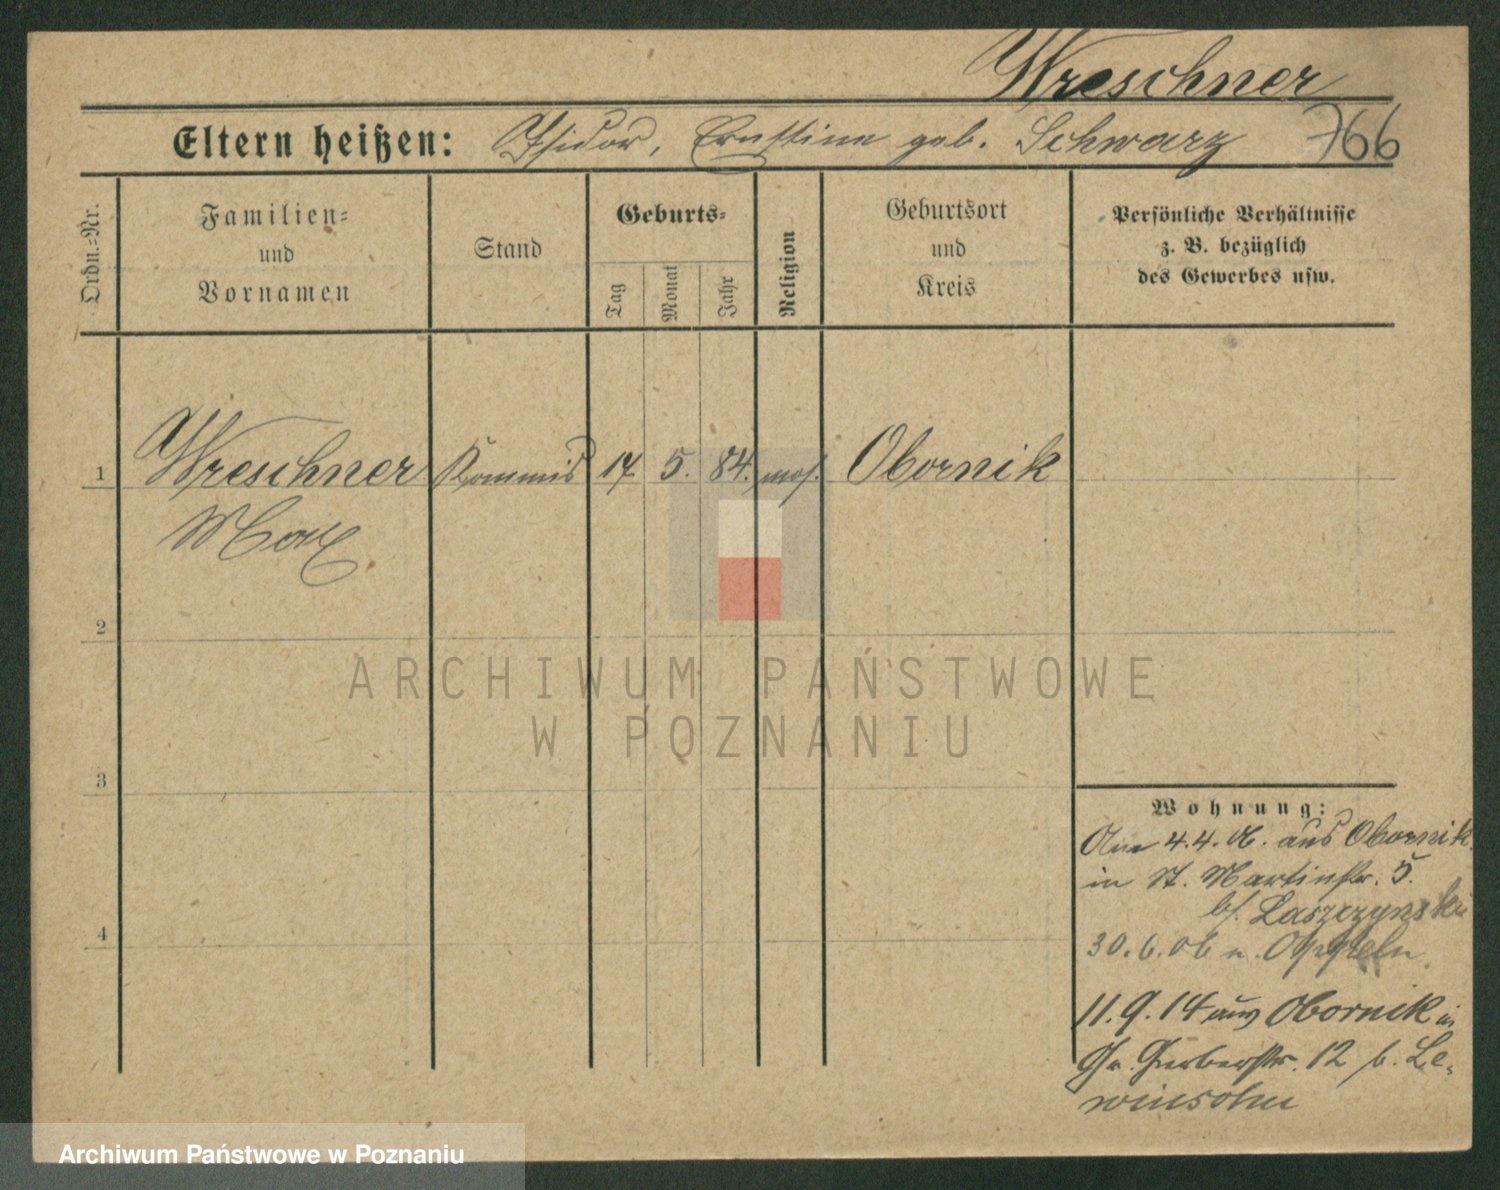 Wreschner
Eltern heißen: Isidor, Ernstine geb. Schwarz 766
Ordn.=Nr.
Familien=
und
Vornamen
Stand
Geburts=
Tag
Monat
Jahr
Religion
Geburtsort
und
Kreis
Persönliche Verhältnisse
z. B. bezüglich
des Gewerbes usw.
1 Wreschner Kommis 17 5. 84. mos. Obornik
Max
2
3
4
ARCHIWUM PAŃSTWOWE
W POZNANIU
Wohnung:
4.4. 06. aus Obornik
in St. Martinstr. 5.
bf. Laszczynski
30.6.06 n. Oppeln.
11.9.14 aus Obornik in
Gr. Gerberstr. 12 b. Le-
winsohn
Archiwum Państwowe w Poznaniu